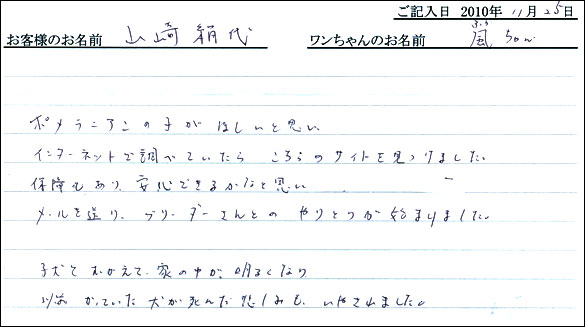 ご記入日 2010年 11月 25日
お客様のお名前 山崎 絹代 ワンちゃんのお名前 風ちゃん
ふう
ポメラニアンの子がほしいと思い
インターネットで調べていたら こちらのサイトを見つけました。
保障もあり、安心できるかなと思い
メールを送り、ブリーダーさんとの やりとりが始まりました。
子犬をむかえて、家の中が、明るくなり
以前 かっていた 犬が死んだ悲しみも、いやされました。